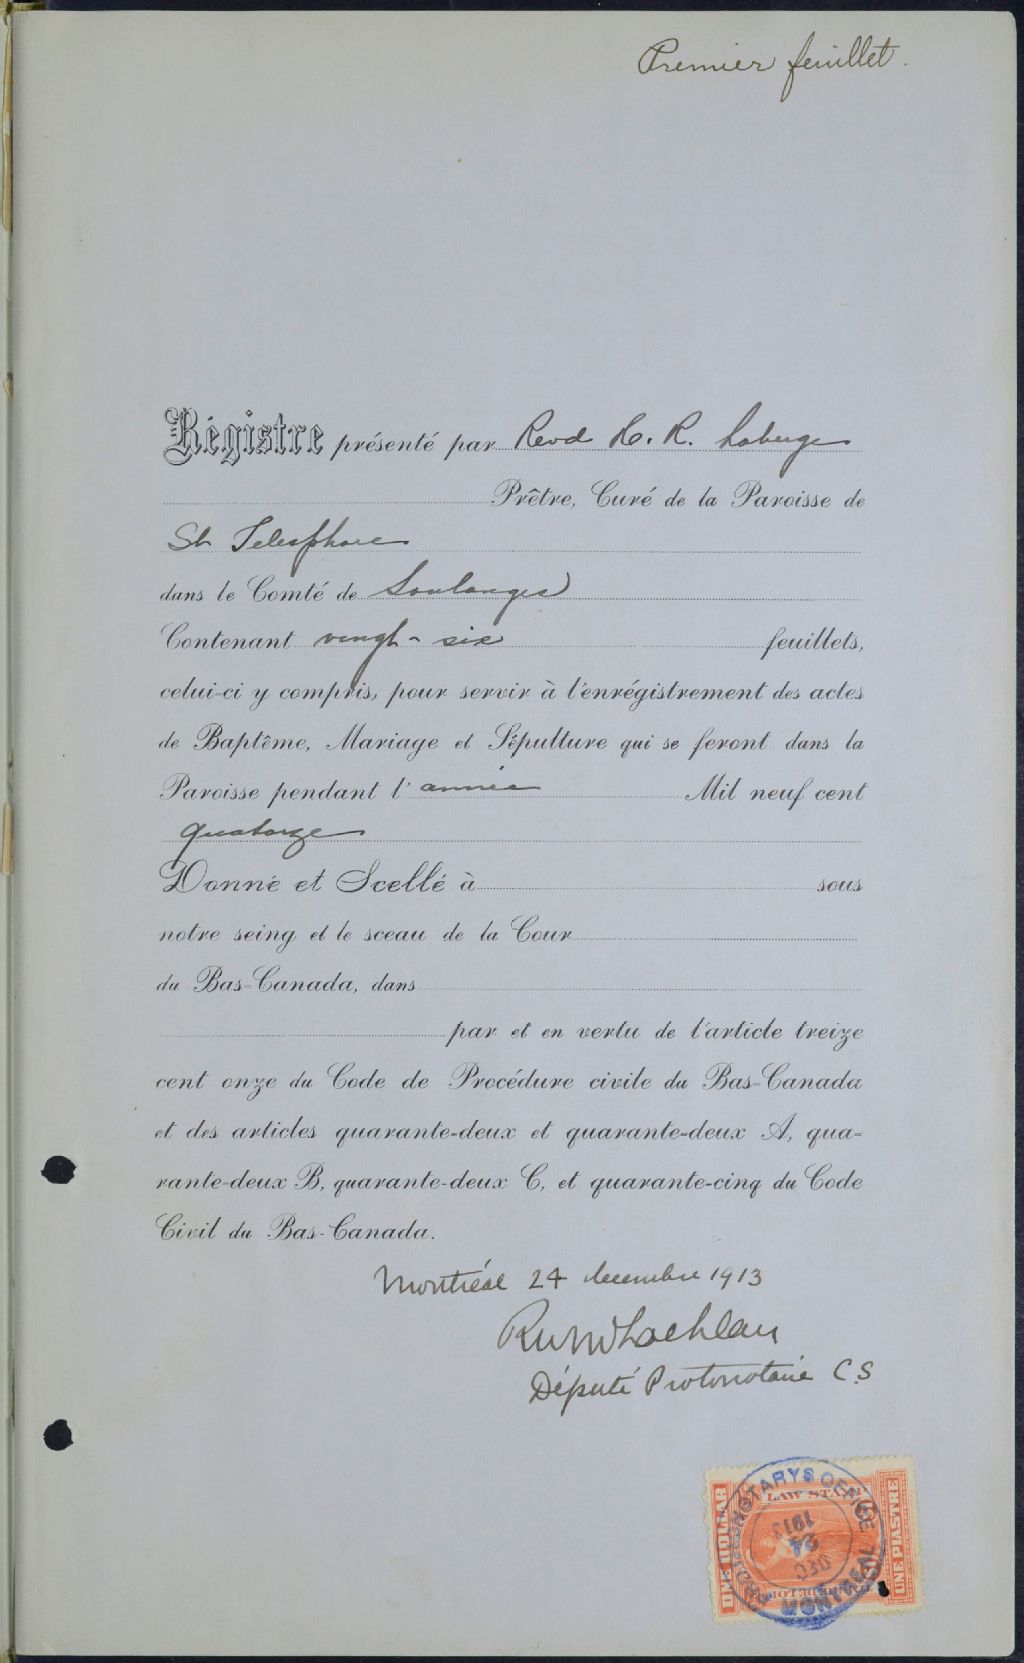 Premier feuillet.
Régistre présenté par Revd H. R. Laberge
Prêtre, Curé de la Paroisse de
St Telesphore
dans le Comté de Soulanges
Contenant vingt-six feuillets,
celui-ci y compris, pour servir à l'enrégistrement des actes
de Baptême, Mariage et Sépulture qui se feront dans la
Paroisse pendant l'année Mil neuf cent
quatorze
Donné et Scellé à sous
notre seing et le sceau de la Cour
du Bas-Canada, dans
par et en vertu de l'article treize
cent onze du Code de Procédure civile du Bas-Canada
et des articles quarante-deux et quarante-deux A, qua-
rante-deux B, quarante-deux C, et quarante-cinq du Code
Civil du Bas-Canada.
Montréal 24 decembre 1913
Député Protonotaire C.S
ONE DOLLAR
LAW STAMP
UNE PIASTRE
PROTHONOTARYS OFFICE
DEC
24
1913
MONTREAL